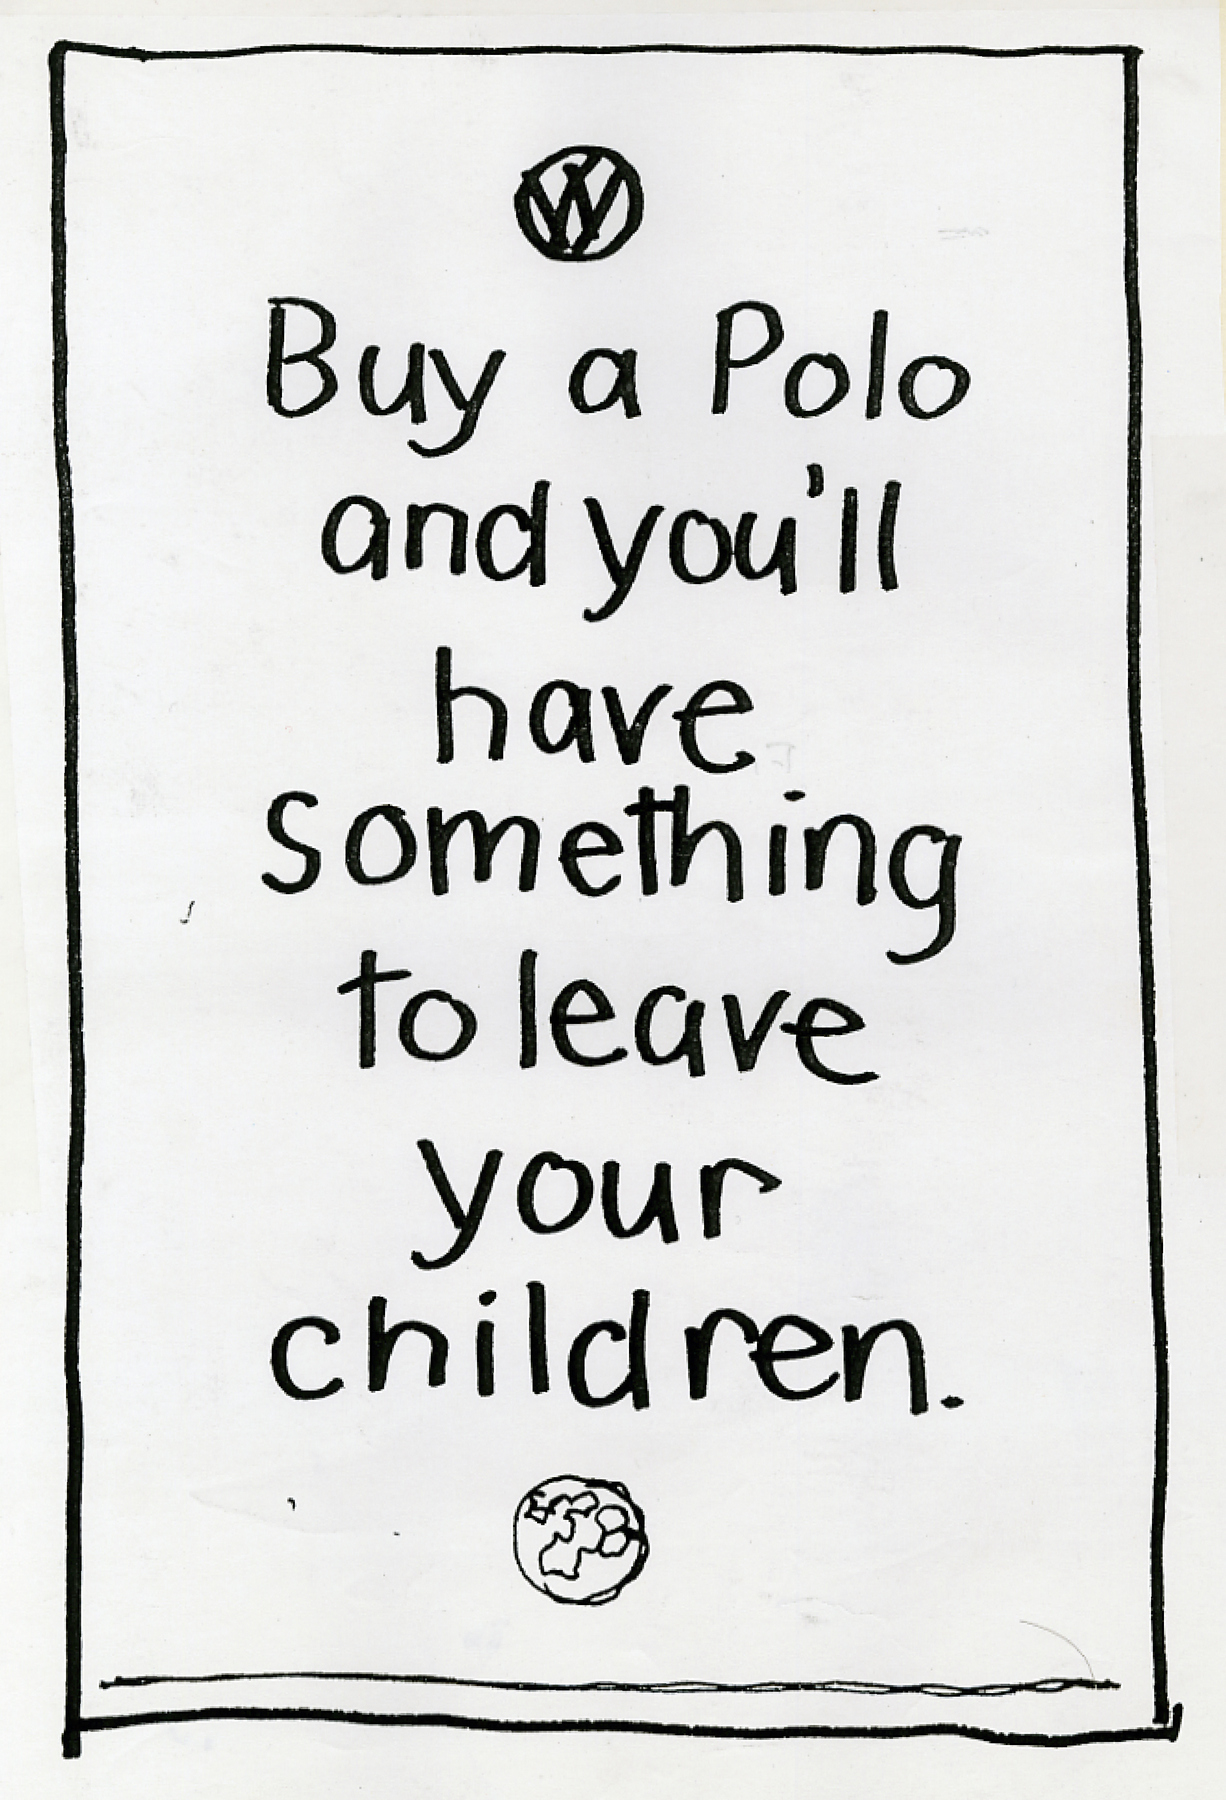 VW
Buy a Polo
and you'll
have
something
to leave
your
children.